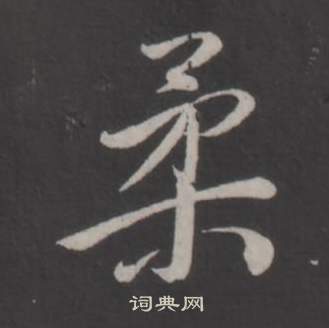 柔
词典网